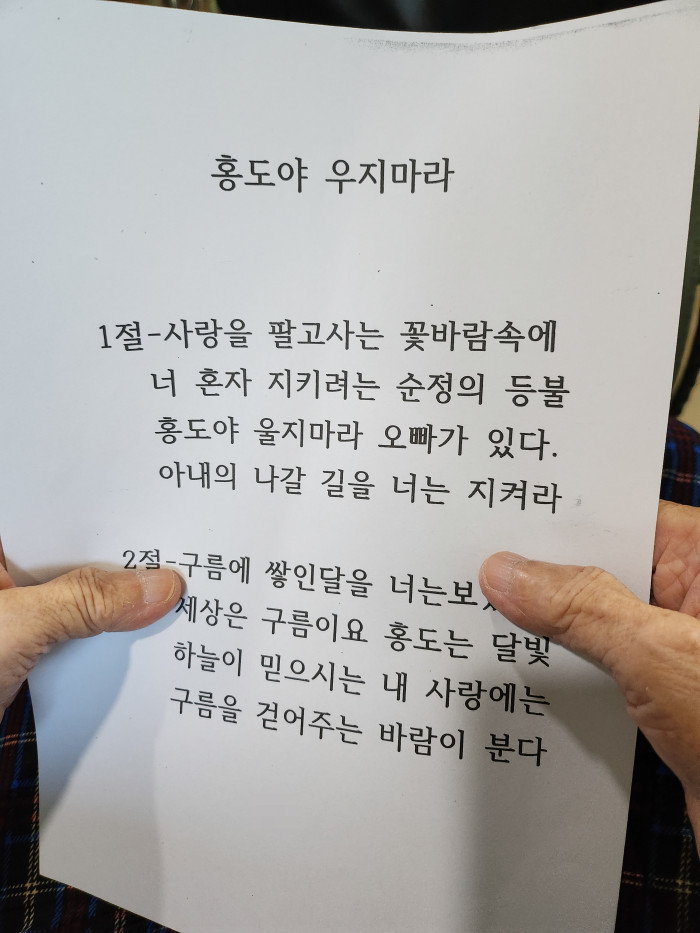 홍도야 우지마라
1절-사랑을 팔고사는 꽃바람속에
너 혼자 지키려는 순정의 등불
홍도야 울지마라 오빠가 있다.
아내의 나갈 길을 너는 지켜라
2절-구름에 쌓인달을
세상은 구름이요 홍도는 달빛
하늘이 믿으시는 내 사랑에는
구름을 걷어주는 바람이 분다